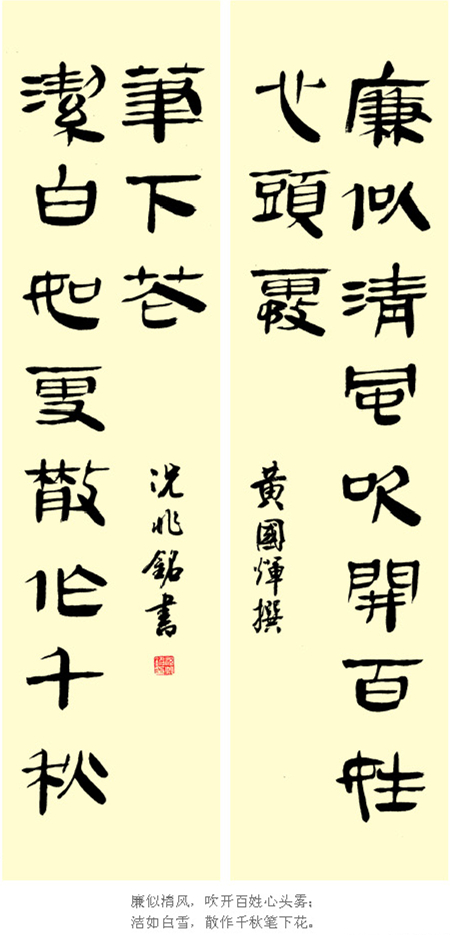 廉似清風吹開百姓
心頭霧
黃國煇撰
潔白如雪散作千秋
筆下花
況兆銘書
廉似清风，吹开百姓心头雾；
洁如白雪，散作千秋笔下花。